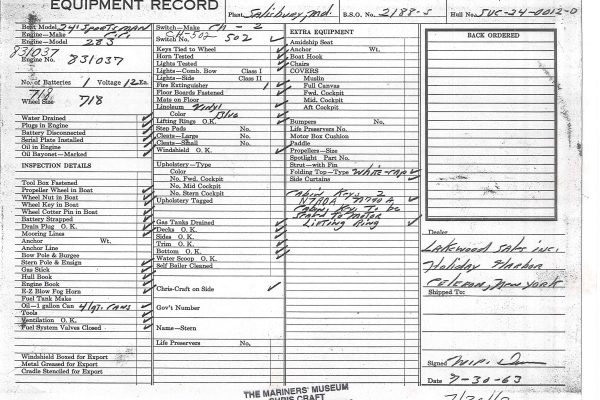 EQUIPMENT RECORD
Plant Salisbury, Md. B.S.O. No. 2188-S Hull No. SUC-24-0012-D
Boat Model 24' Sportsman
Engine—Make C.C.
Engine—Model 283
831037
Engine No. 831037
No. of Batteries 1 Voltage 12 Ea.
718
Wheel Size 718
Water Drained
Plugs in Engine
Battery Disconnected
Serial Plate Installed
Oil in Engine
Oil Bayonet—Marked
INSPECTION DETAILS
Tool Box Fastened
Propeller Wheel in Boat
Wheel Nut in Boat
Wheel Key in Boat
Wheel Cotter Pin in Boat
Battery Strapped
Drain Plug O. K.
Mooring Lines
Anchor Wt.
Anchor Line
Bow Pole & Burgee
Stern Pole & Ensign
Gas Stick
Hull Book
Engine Book
E-Z Blow Fog Horn
Fuel Tank Make
Oil—1 gallon Can 4/qt. cans
Tools
Ventilation O. K.
Fuel System Valves Closed
Windshield Boxed for Export
Metal Greased for Export
Cradle Stenciled for Export
Switch—Make CH-2
CH-502
Switch No. 502
Keys Tied to Wheel
Horn Tested
Lights Tested
Lights—Comb. Bow Class I
Lights—Side Class II
Fire Extinguisher 1
Floor Boards Fastened
Mats on Floor
Linoleum Vinyl
Color Blue
Lifting Rings O. K.
Step Pads No.
Chests—Large No.
Chests—Small No.
Windshield O. K.
Upholstery—Type
Color
No. Fwd. Cockpit
No. Mid Cockpit
No. Stern Cockpit
Upholstery Tagged
Gas Tanks Drained
Decks O. K.
Sides O. K.
Trim O. K.
Bottom O. K.
Water Scoop O. K.
Self Bailer Cleaned
Chris-Craft on Side
Gov't Number
Name—Stern
Life Preservers No.
EXTRA EQUIPMENT
Amidship Seat
Anchor Wt.
Boat Hook
Chairs
COVERS
Muslin
Full Canvas
Fwd. Cockpit
Mid. Cockpit
Aft Cockpit
Bumpers No.
Life Preservers No.
Motor Box Cushion
Paddle
Propellers—Size
Spotlight Part No.
Strut—with Fin
Folding Top—Type White-cap
Side Curtains
Cabin Keys 2
N790A N790A
Cabin Key T. be
Lifting Ring
BACK ORDERED
Dealer
Lakewood Sales Inc.
Holiday Harbor
Celeron, New York
Shipped To:
Signed
Date 7-30-63
THE MARINERS' MUSEUM
CHRIS CRAFT